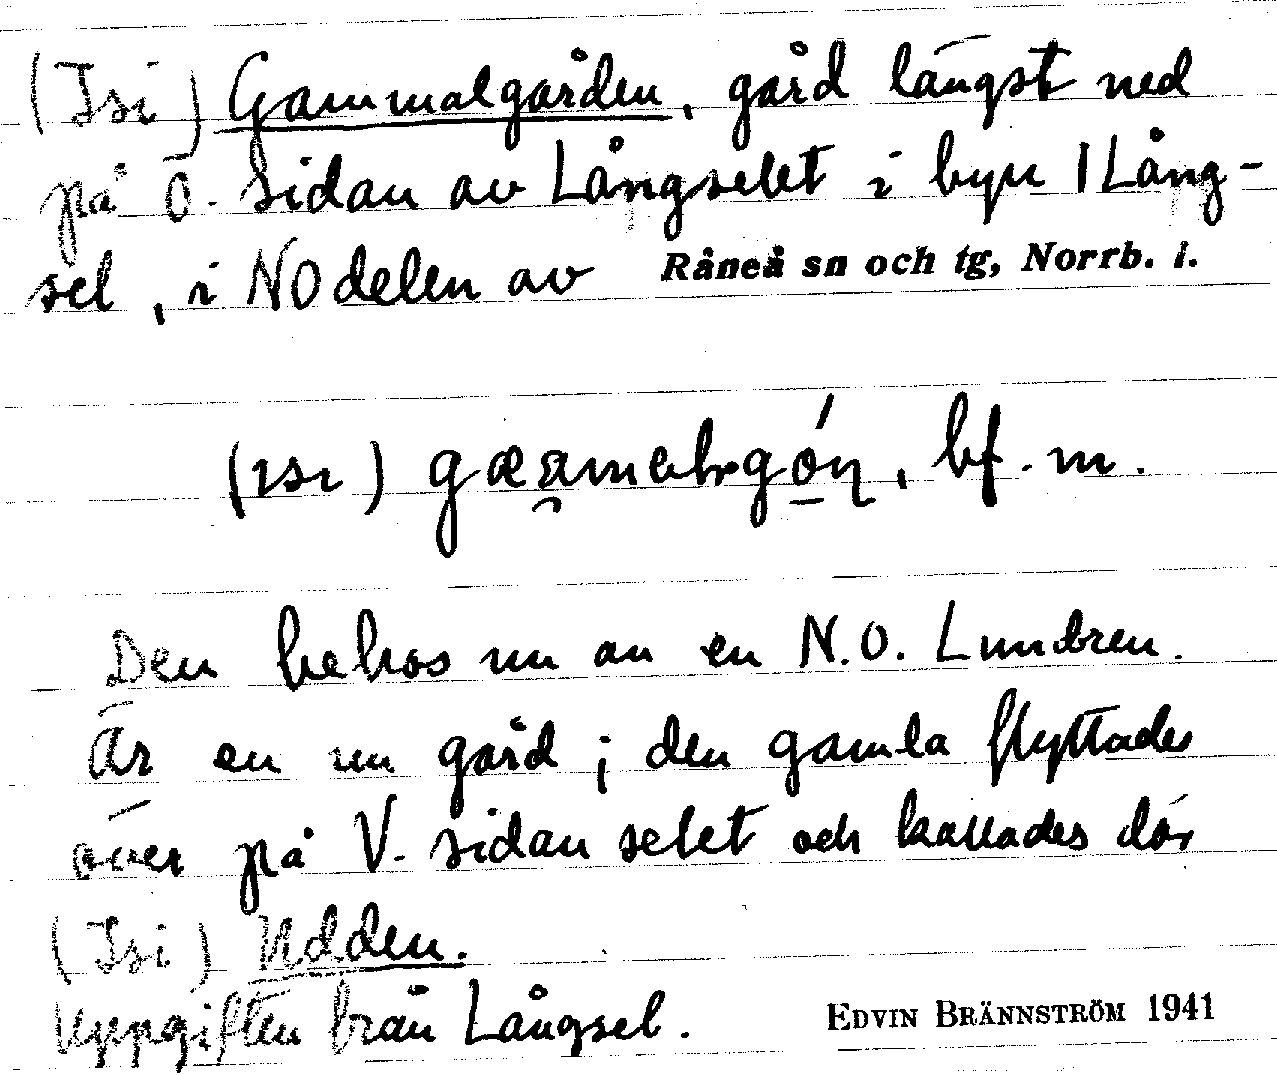 (Isi) Gammalgården, gård längst ned
på Ö. sidan av Långselet i byn Lång-
sel, i NO delen av Råneå sn och tg, Norrb. l.
(ısı) bf. m.
Den bebos nu av en N.O. Lundgren.
Är en ny gård; den gamla flyttades
över på V. sidan selet och kallades där
(Isi) Udden.
Uppgiften från Långsel. EDVIN BRÄNNSTRÖM 1941